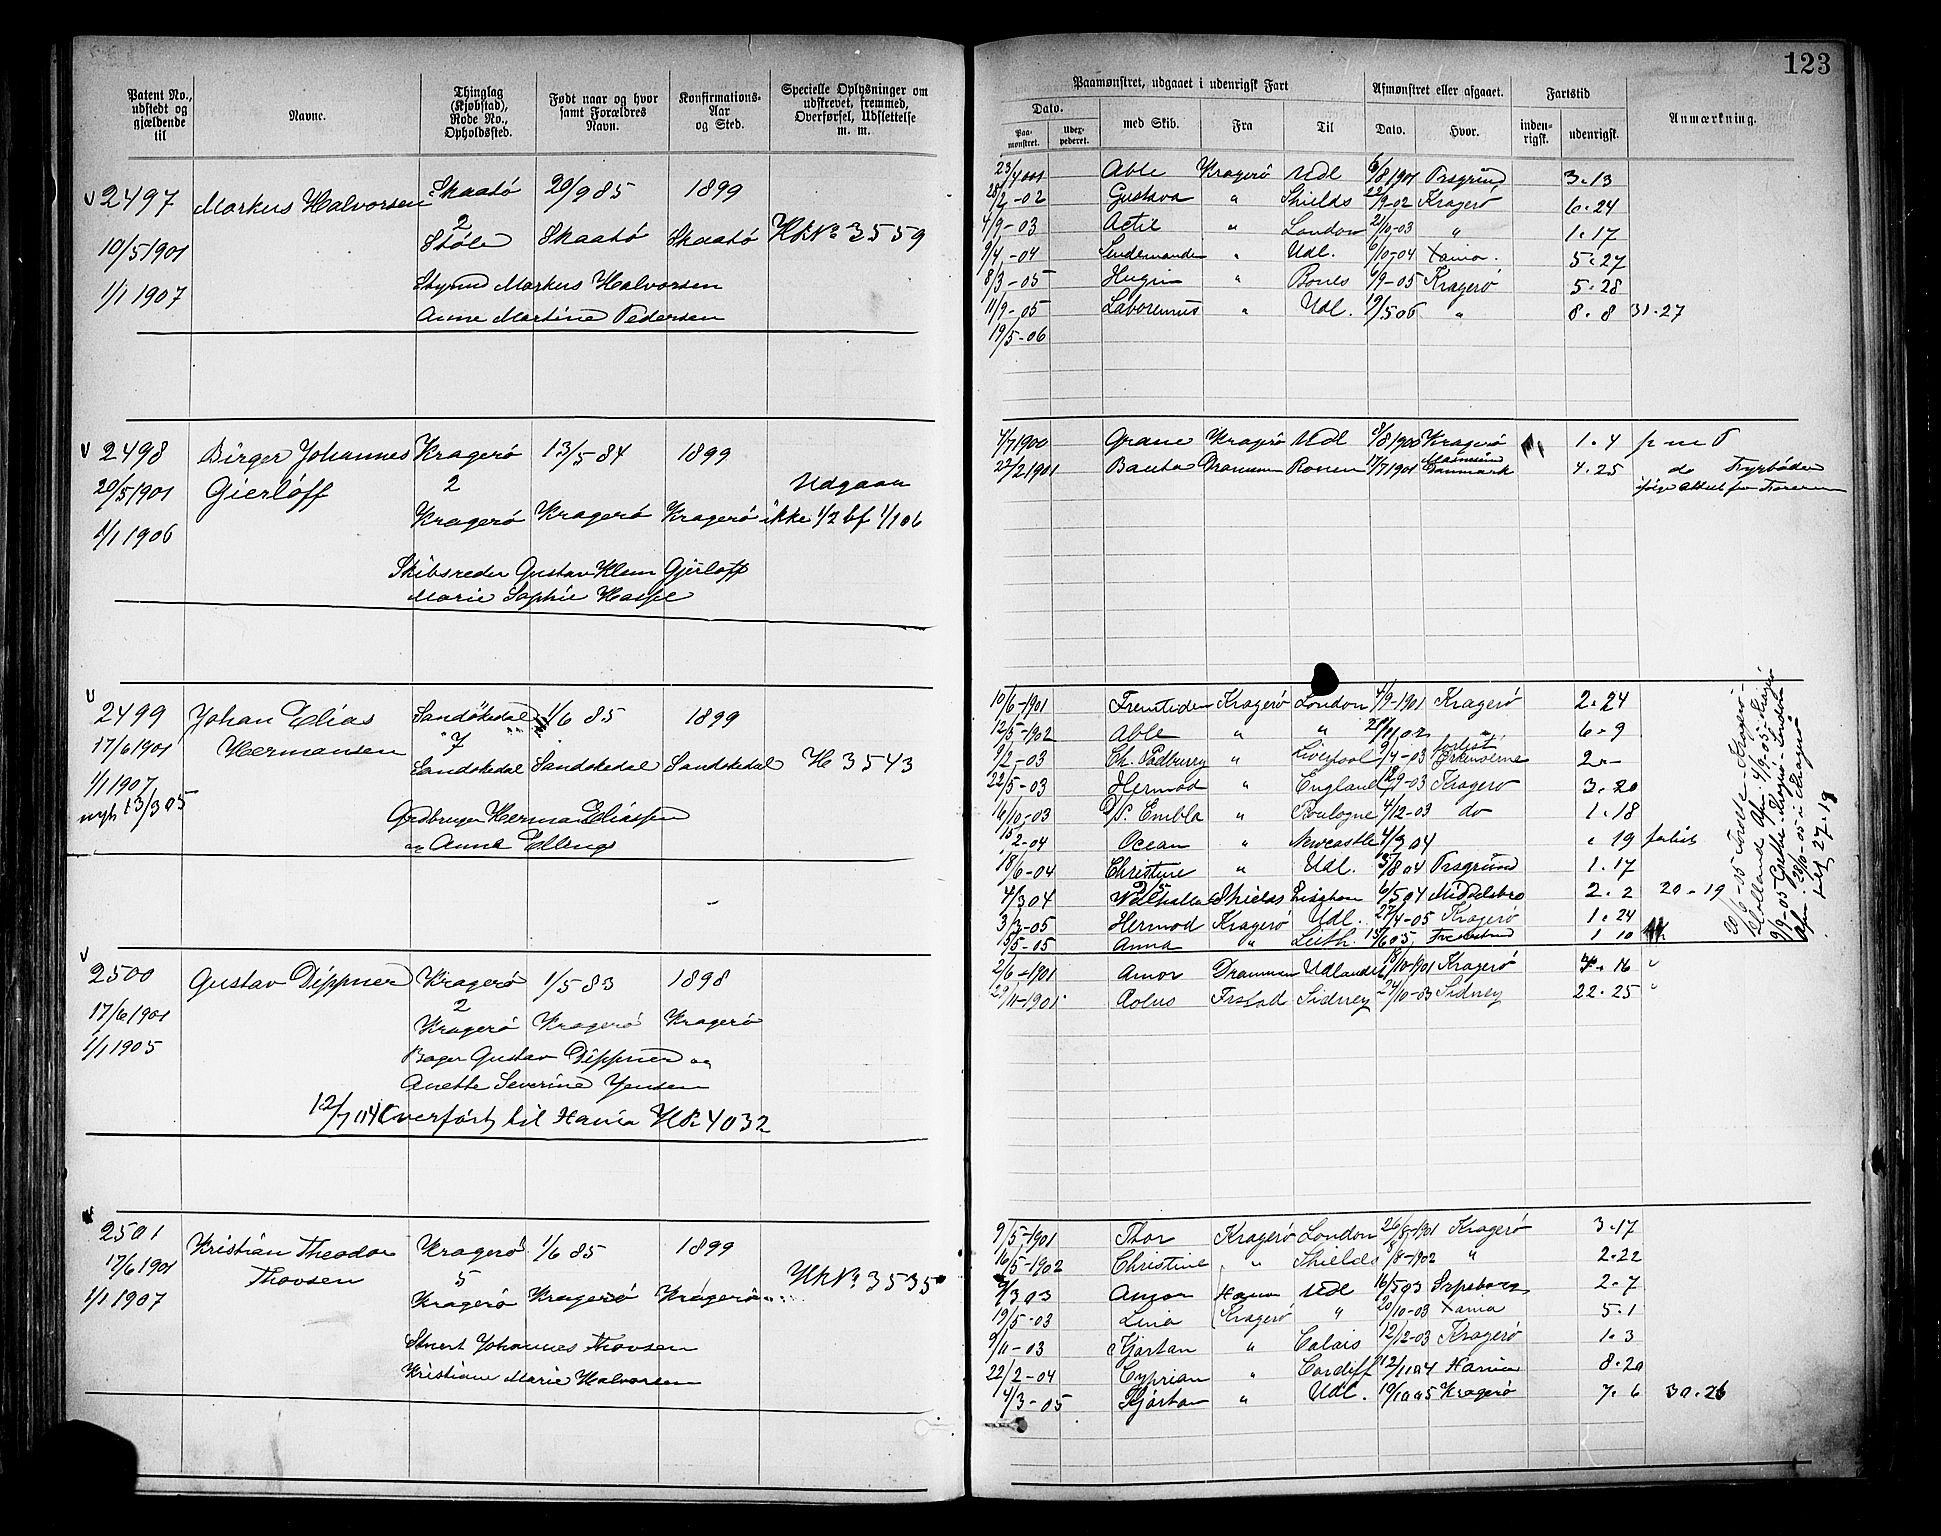 123
Patent No., udstedt og gjældende til
Navne.
Thinglag (Kjøbstad), Rode No., Opholdssted.
Født naar og hvor samt Forældres Navn.
Konfirmations- Aar og Sted.
Specielle Oplysninger om udskrevet, fremmed, Overførsel, Udslettelse m. m.
Paamønstret, udgaaet i udenrigsk Fart
Dato.
Paa- mønstret.
med Skib.
Fra
Til
Afmønstret eller afgaaet.
Dato.
Hvor.
Fartstid
inden- rigsk.
udenrigsk.
Anmærkning.
2497 Markus Halvorsen Skaatö 20/9 85 1899
2
10/5 1901 Støle Skaatö Skaatö HR No 3559
1/1 1907 Styrmd Markus Halvorsen
Anne Martine Pedersen
23/4 001 Able Kragerö Udl 6/8 1901 Prsgrund 3.13
28/2 -02 Gustava " Shields 22/9-02 Kragerö 6.24
4/9-03 Actie " London 21/10-03 " 1.17
9/4-04 " Udl. 6/10-04 Xania. 5.27
8/3-05 Hugin " Bones 6/9-05 Kragerö 5.28
11/9-05 Laboremus " Udl. 19/5 06 " 8.8 31.27
19/5-06
2498 Birger Johannes Kragerö 13/5 84 1899
20/5 1901 Gierløff 2 Udgaar
1/1 1906 Kragerö Kragerö Kragerö ikke 1/2 bf 1/1 06
Skibsreder Gustav Klem Gjerløff
Marie Sophie Hassel
4/7 1900 Grane Kragerö Udl 8/8 1900 Kragerö 1.4
22/2 1901 Bauta Drammen Rouen 17/7 1901 Danmark 4.25 do Fyrbøder
2499 Johan Elias Sandökedal 1/6 85 1899
17/6 1901 Hermansen 7
1/1 1907 Sandökedal Sandökedal Sandökedal H 3543
nyt 13/3 05
Grdbruger Herman Eliassen
og Anne Ellings
10/6-1901 Fremtiden Kragerö London 4/9-1901 Kragerö 2.24
12/5-1902 Able " " 21/11 02 " 6.9
9/2-03 Ch. Padburry " Liverpool 9/4-03 forlist Orkenöerne 2.-
22/5-03 Hermod " England 12/9-03 Kragerö 3.20
16/10-03 D/S. Embla " Boulogne 4/12-03 do 1.18
15/2-04 Ocean " Newcastle 4/3 04 " 19 forlist
18/6-04 Christine " Udl. 5/8 04 Prsgrund 1.17
4/3 04 Walhalla Shields Lissabon 6/5 04 Middelsbro 2.2 20-19
3/3-05 Hermod Kragerö Udl. 27/4-05 Kragerö 1.24
15/5-05 Anna " Leith. 15/6 05 Fredrikstad 1 10
20/6-15 Trolle - Kragerö -
Holland Afm. 4/9-05 - Kragerö
9/9-05 Grethe Kragerö - London
Afm. 28/10-05 i Kragerö
27.19
2500 Gustav Dippner Kragerö 1/5 83 1898
17/6 1901 2
1/1 1905 Kragerö Kragerö Kragerö
Bager Gustav Dippner og
Anette Severine Jensen
12/7 04 Overført til Xania HR 4032
2/6-1901 Amor Drammen Udlandet 18/10-1901 Kragerö 4.16 "
29/11-1901 Aolus Frstad Sidney 24/10-03 Sidney 22.25 "
2501 Kristian Theodor Kragerö 1/6 85 1899
17/6 1901 Thovsen 5
1/1 1907 Kragerö Kragerö Kragerö HR No 3535
Stuert Johannes Thovsen
Kristiane Marie Halvorsen
9/5-1901 Thor Kragerö London 26/8-1901 Kragerö 3.17
16/5-1902 Christine " Shields 8/8-1902 " 2.22
9/3 03 Amor Xania Udl 16/5 03 Srpsborg 2.7
19/5-03 Lina Kragerö " 20/10-03 Xania 5.1
9/11-03 Kjartan " Calais 12/12-03 Kragerö 1.3
22/2-04 Cyprian " Cardiff 12/11 04 Xania 8.20
4/3-05 Kjartan " Udl. 19/10 05 Kragerö 7.6 30.26